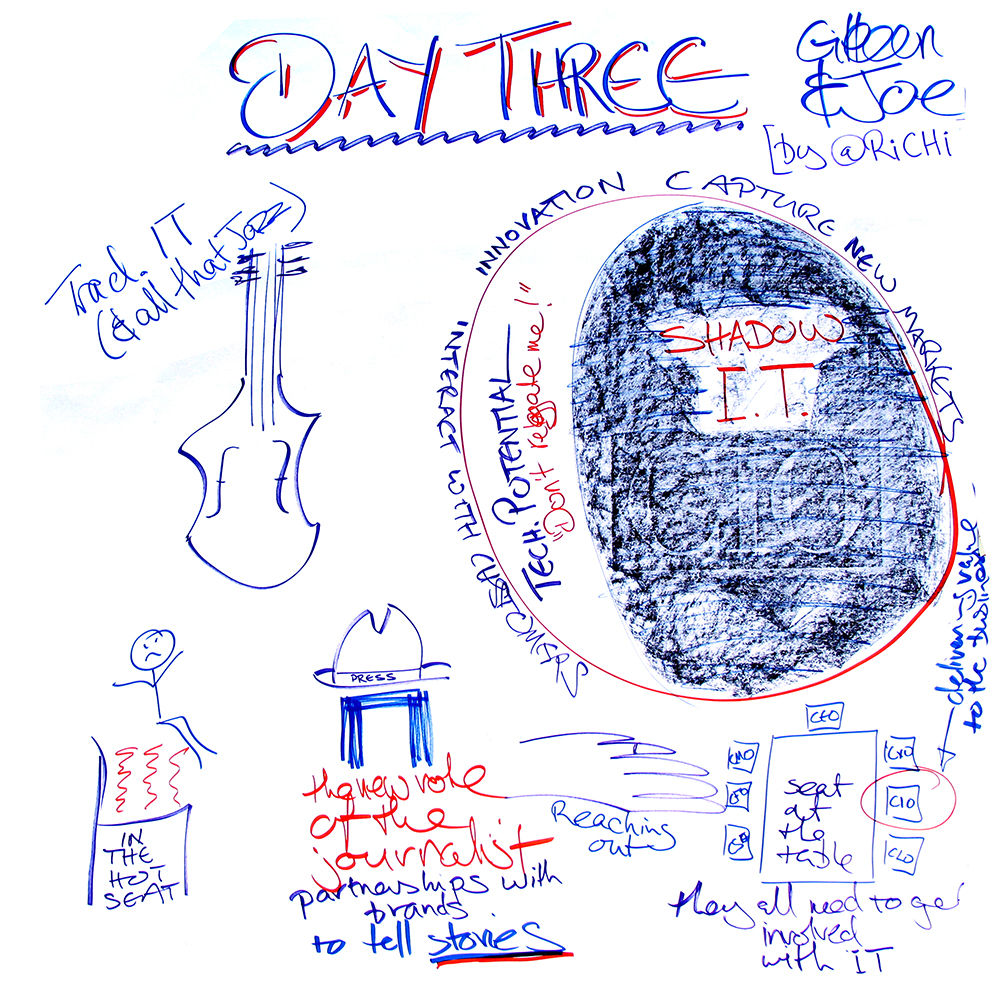 DAY THREE
& Joe
[by @RiCHi
Trad. IT
(& all that Jazz)
INNOVATION CAPTURE NEW MARKETS
INTERACT WITH CUSTOMERS
TECH. POTENTIAL
"Don't relegate me!"
SHADOW
I.T.
delivering value
to the business
IN
THE
HOT
SEAT
PRESS
the new role
of the
journalist
partnerships with
brands
to tell stories
Reaching
out
CEO
CMO
CIO
seat
at
the
table
they all need to get
involved
with IT